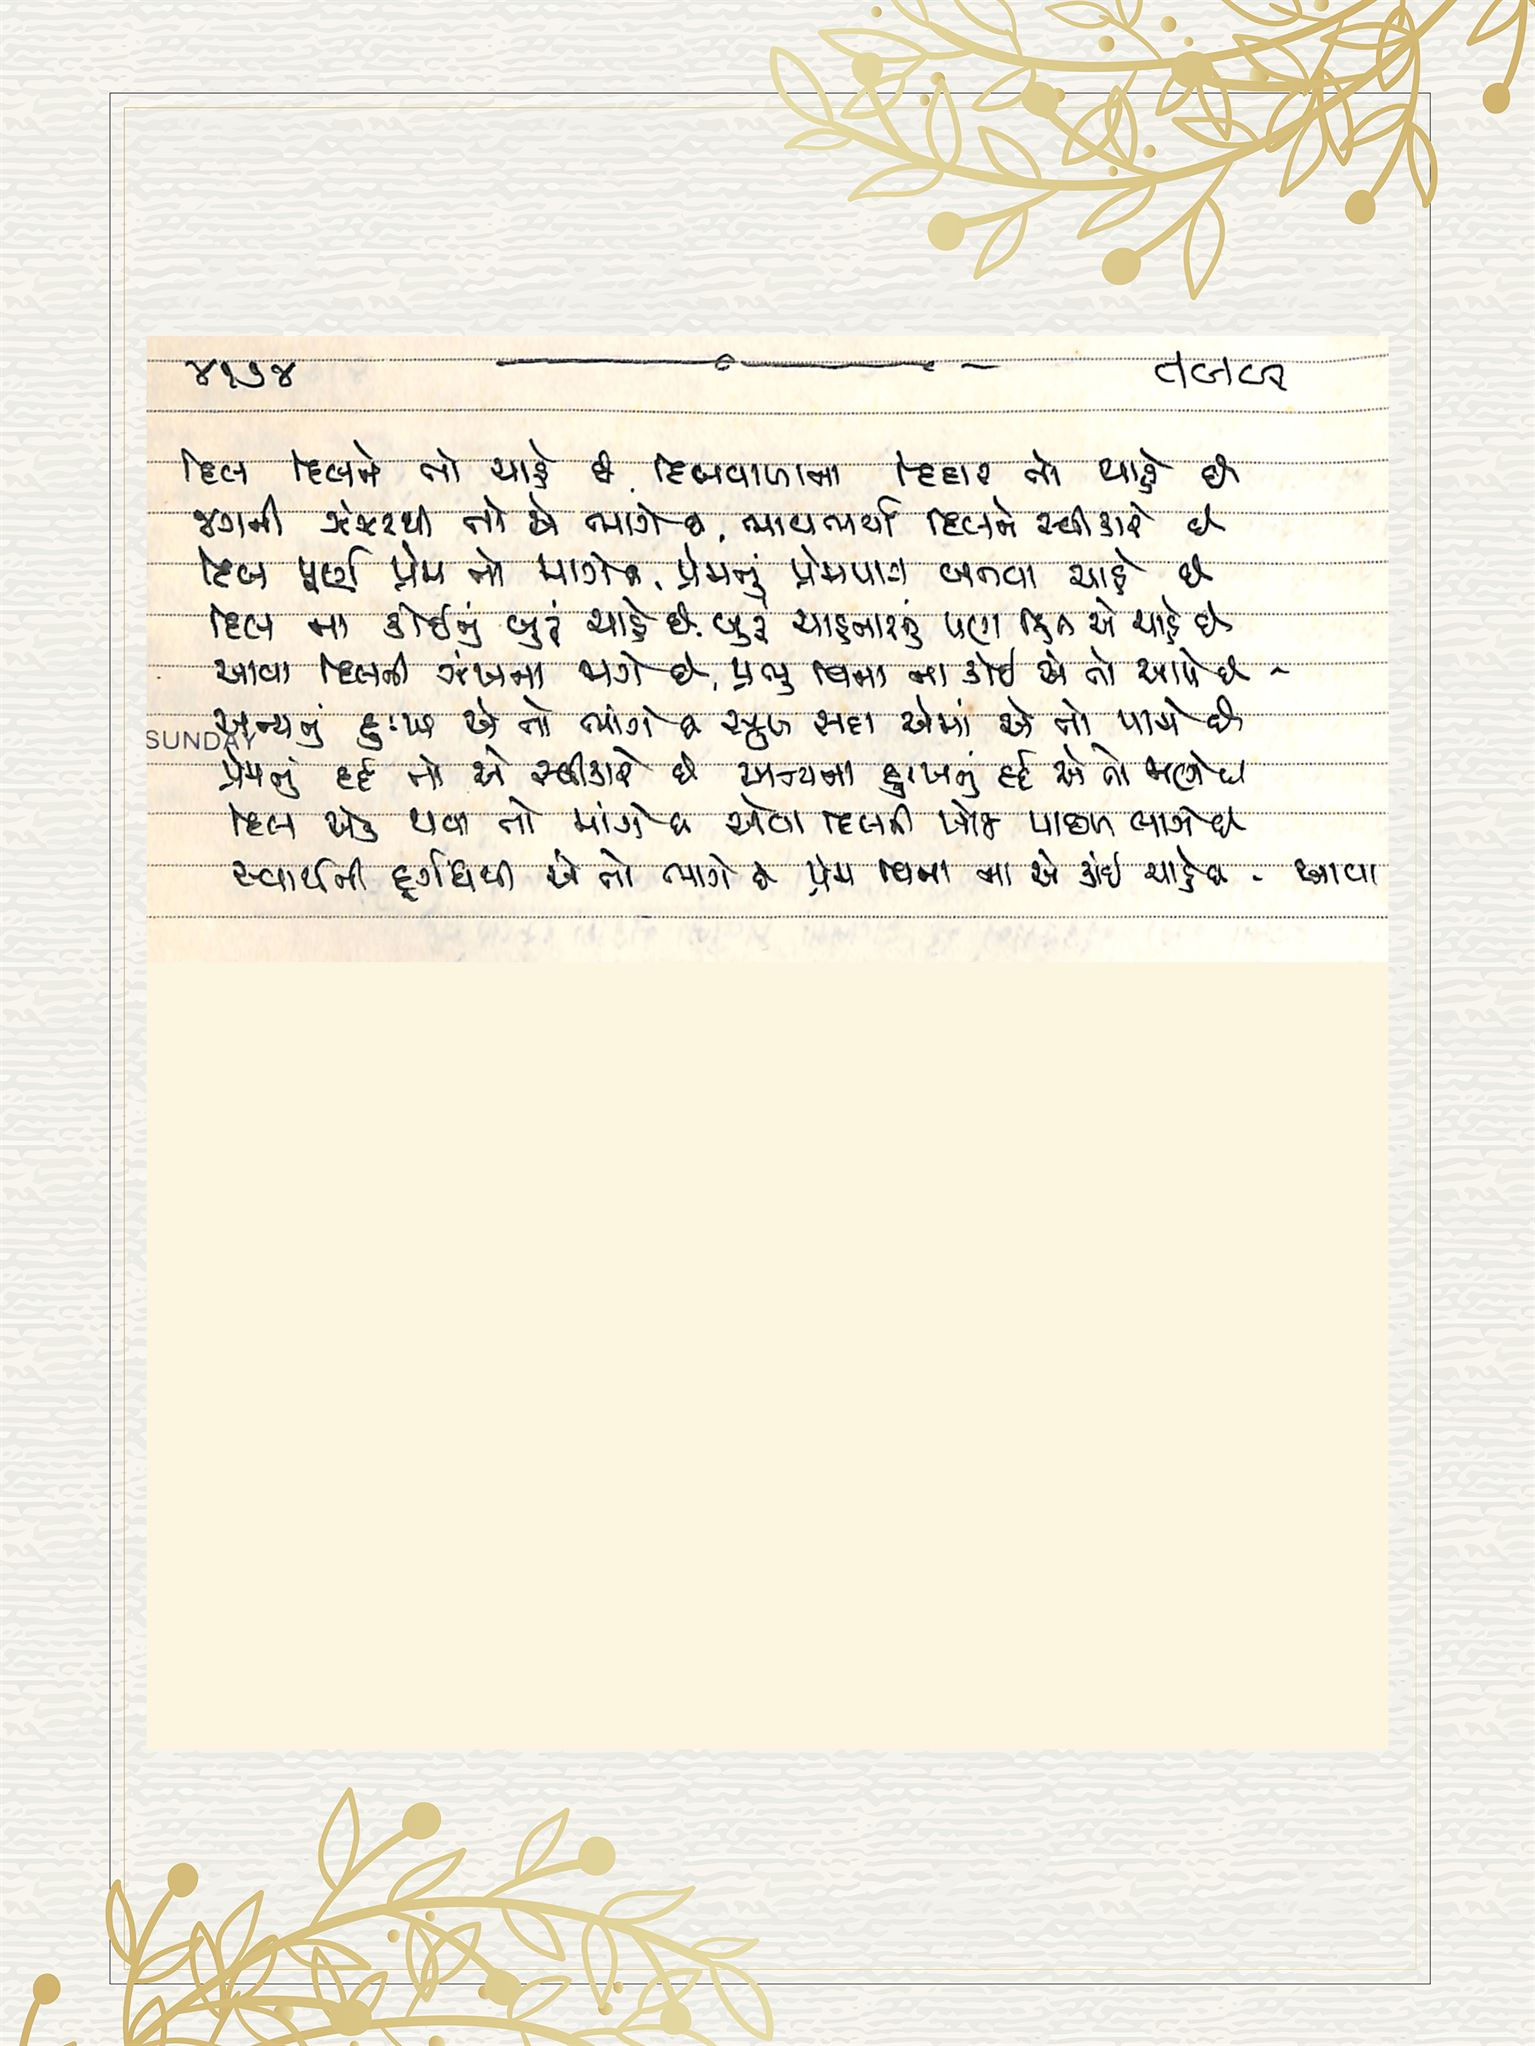 ૪૧૭૪
દિલ દિલને તો ચાહે છે, દિલવાળાના દિદાર તો ચાહે છે
જગની ઝંઝટથી તો એ ભાગે છે, ભાવભર્યા દિલને સ્વીકારે છે
દિલ પૂર્ણ પ્રેમ તો માગે છે, પ્રેમનું પ્રેમપાત્ર બનવા ચાહે છે
દિલ ના કોઈનું બુરૂં ચાહે છે. બુરૂં ચાહનારનું પણ હિત એ ચાહે છે
આવા દિલની ઝંખના જાગે છે, પ્રભુ વિના ના કોઈ એ તો આપે છે ~
અન્યનું દુઃખ એ તો ભાંગે છે સુખ સદા એમાં એ તો પામે છે
SUNDAY
પ્રેમનું દર્દ તો એ સ્વીકારે છે અન્યના દુઃખનું દર્દ એ તો જાણે છે
દિલ એક થવા તો માંગે છે એવા દિલની ખોજ પાછળ લાગે છે
સ્વાર્થની દૂર્ગંધથી એ તો ભાગે છે પ્રેમ વિના ના એ કાંઈ ચાહે છે - આવા